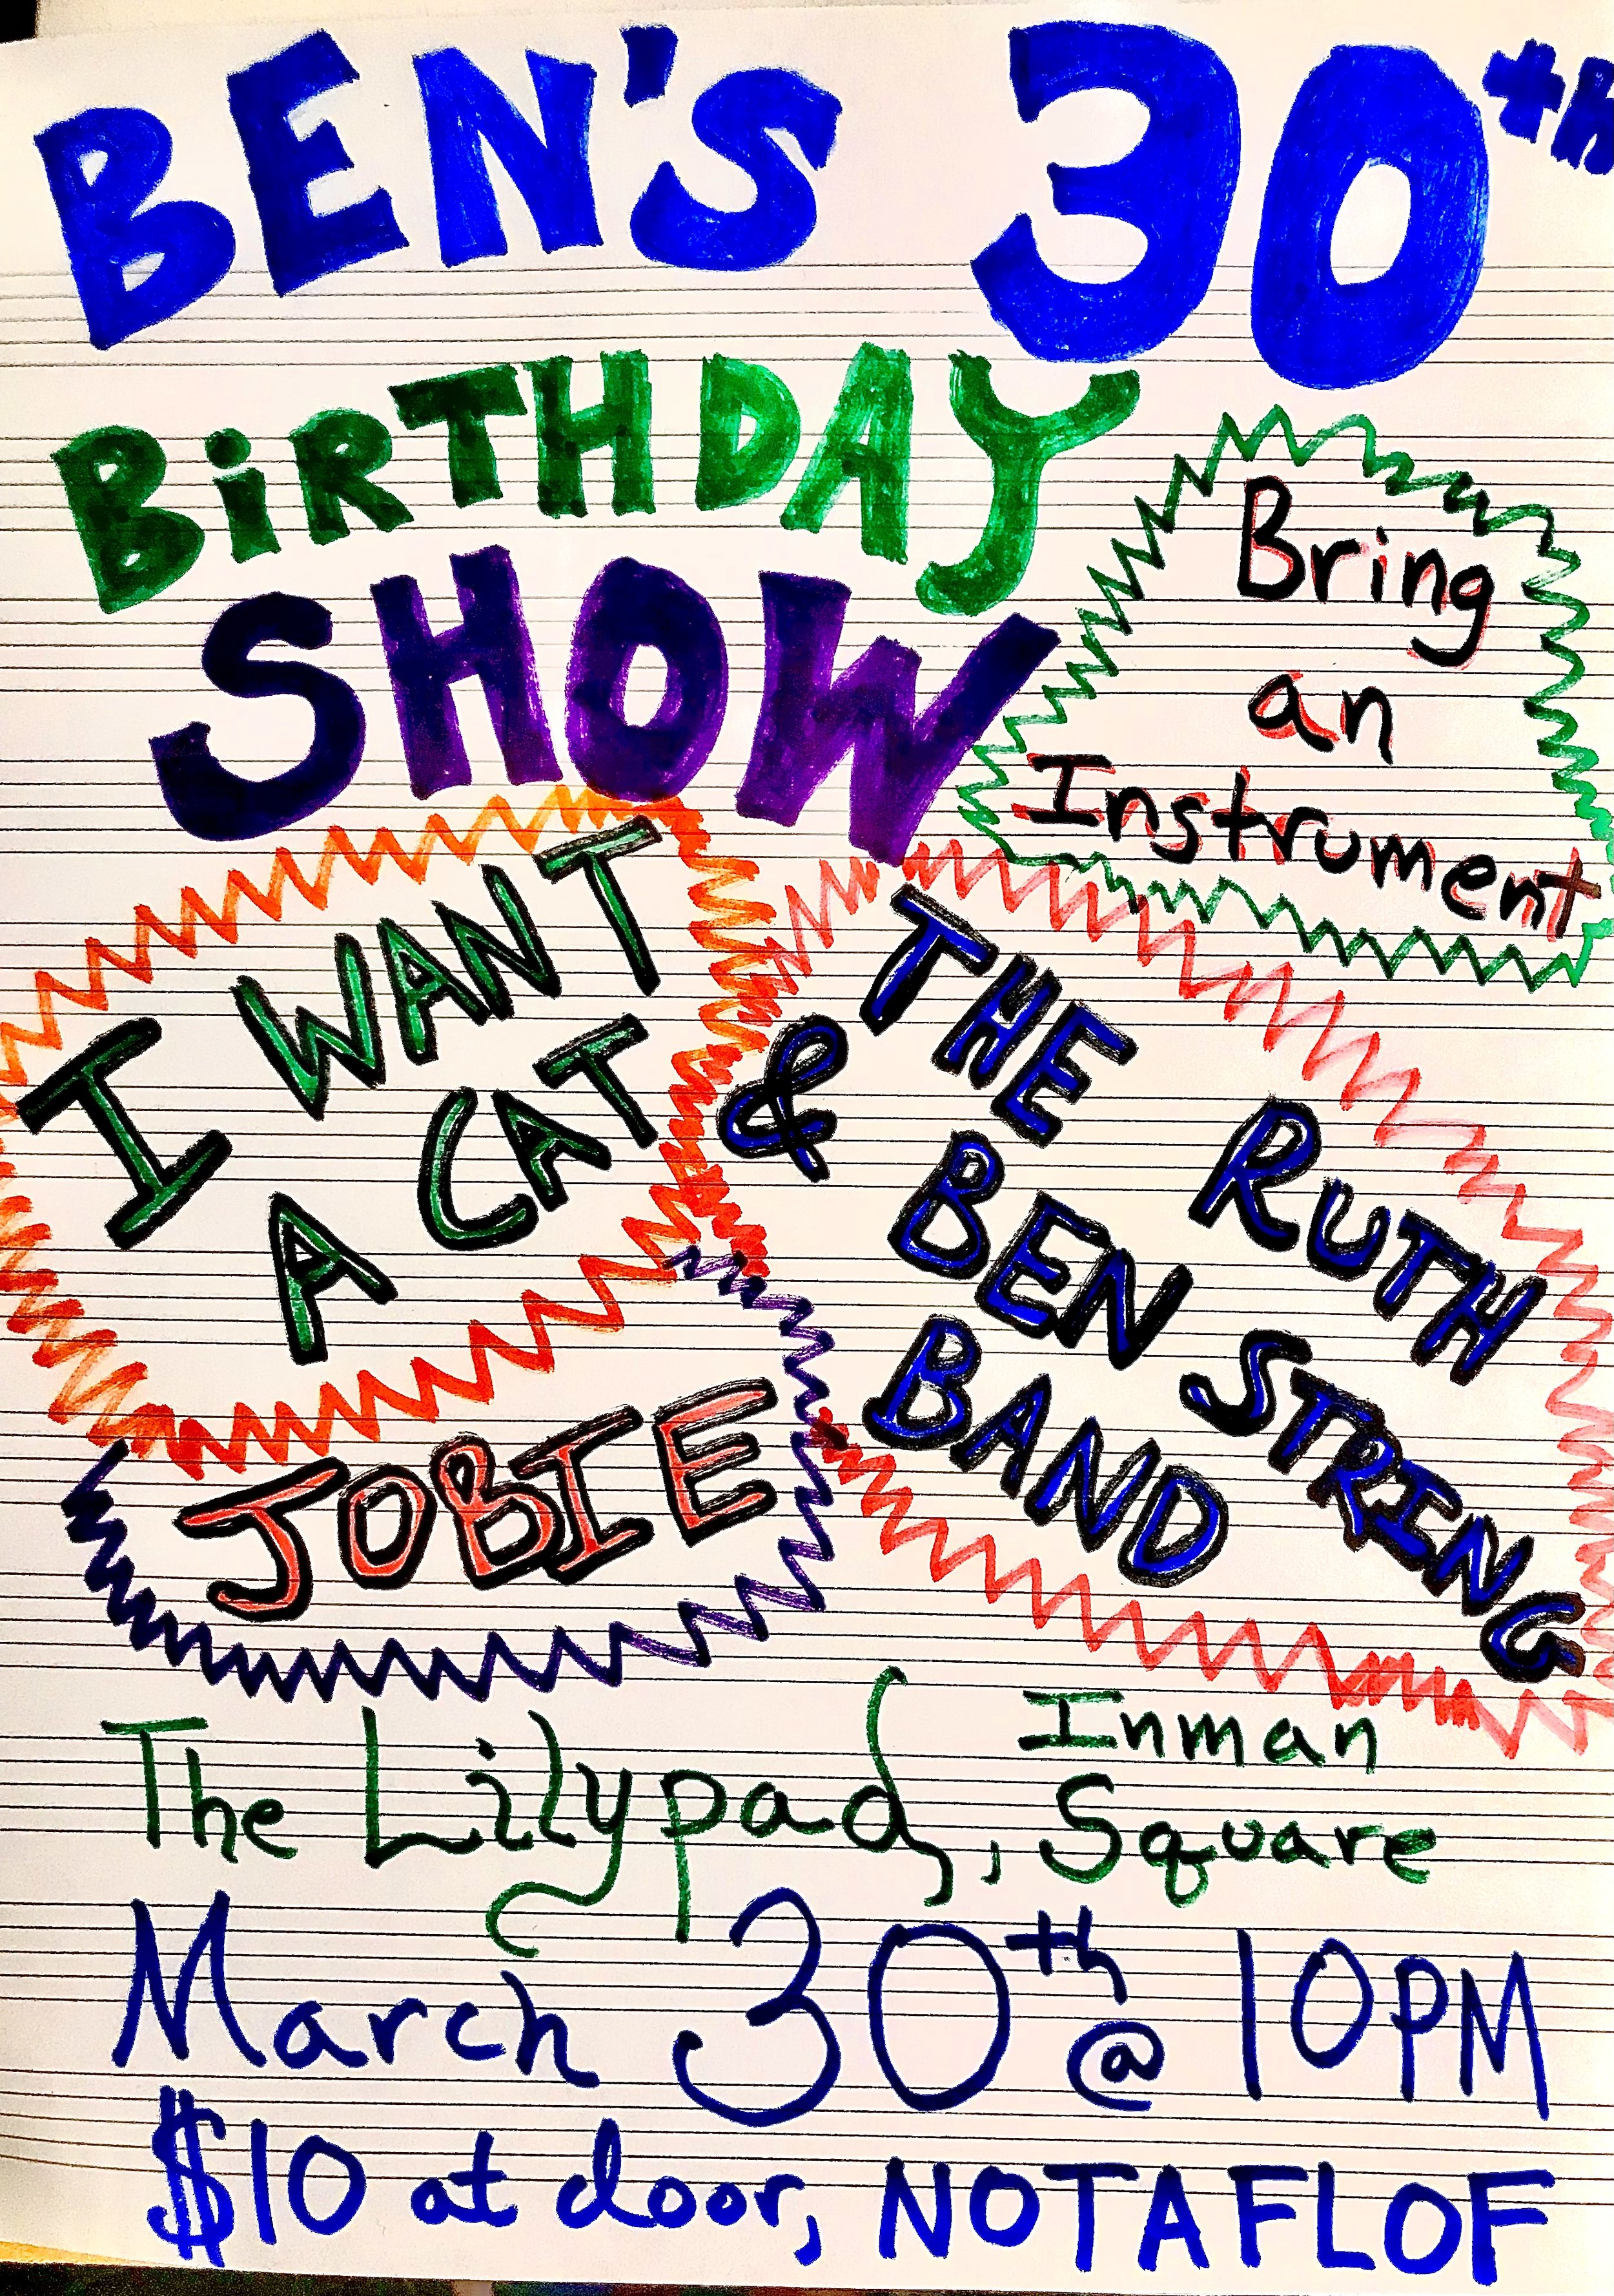 BEN'S 30th
BiRTHDAY
SHOW
Bring
an
Instrument
I WANT
A CAT
& THE RUTH
BEN STRING
BAND
JOBIE
The Lilypad, Inman
Square
March 30th @ 10PM
$10 at door, NOTAFLOF